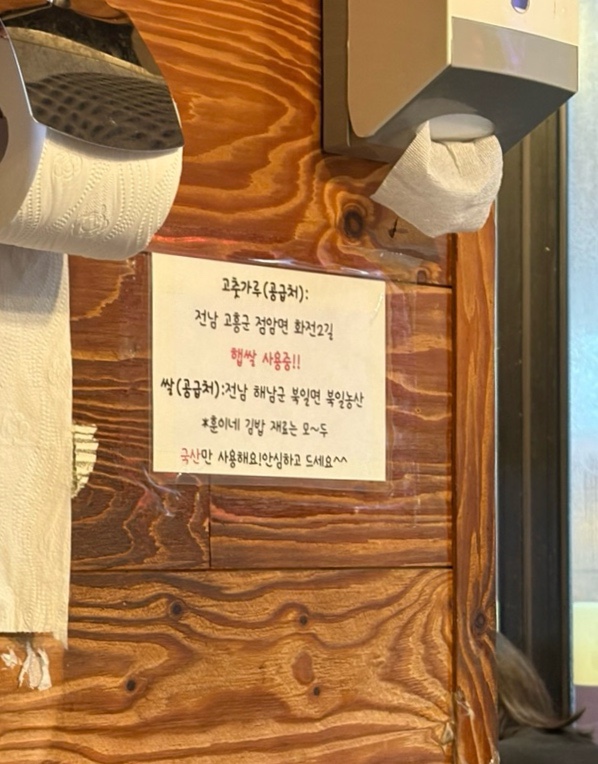 고춧가루(공급처):
전남 고흥군 점암면 화전2길
햅쌀 사용중!!
쌀(공급처):전남 해남군 북일면 북일농산
*훈이네 김밥 재료는 모~두
국산만 사용해요!안심하고 드세요^^